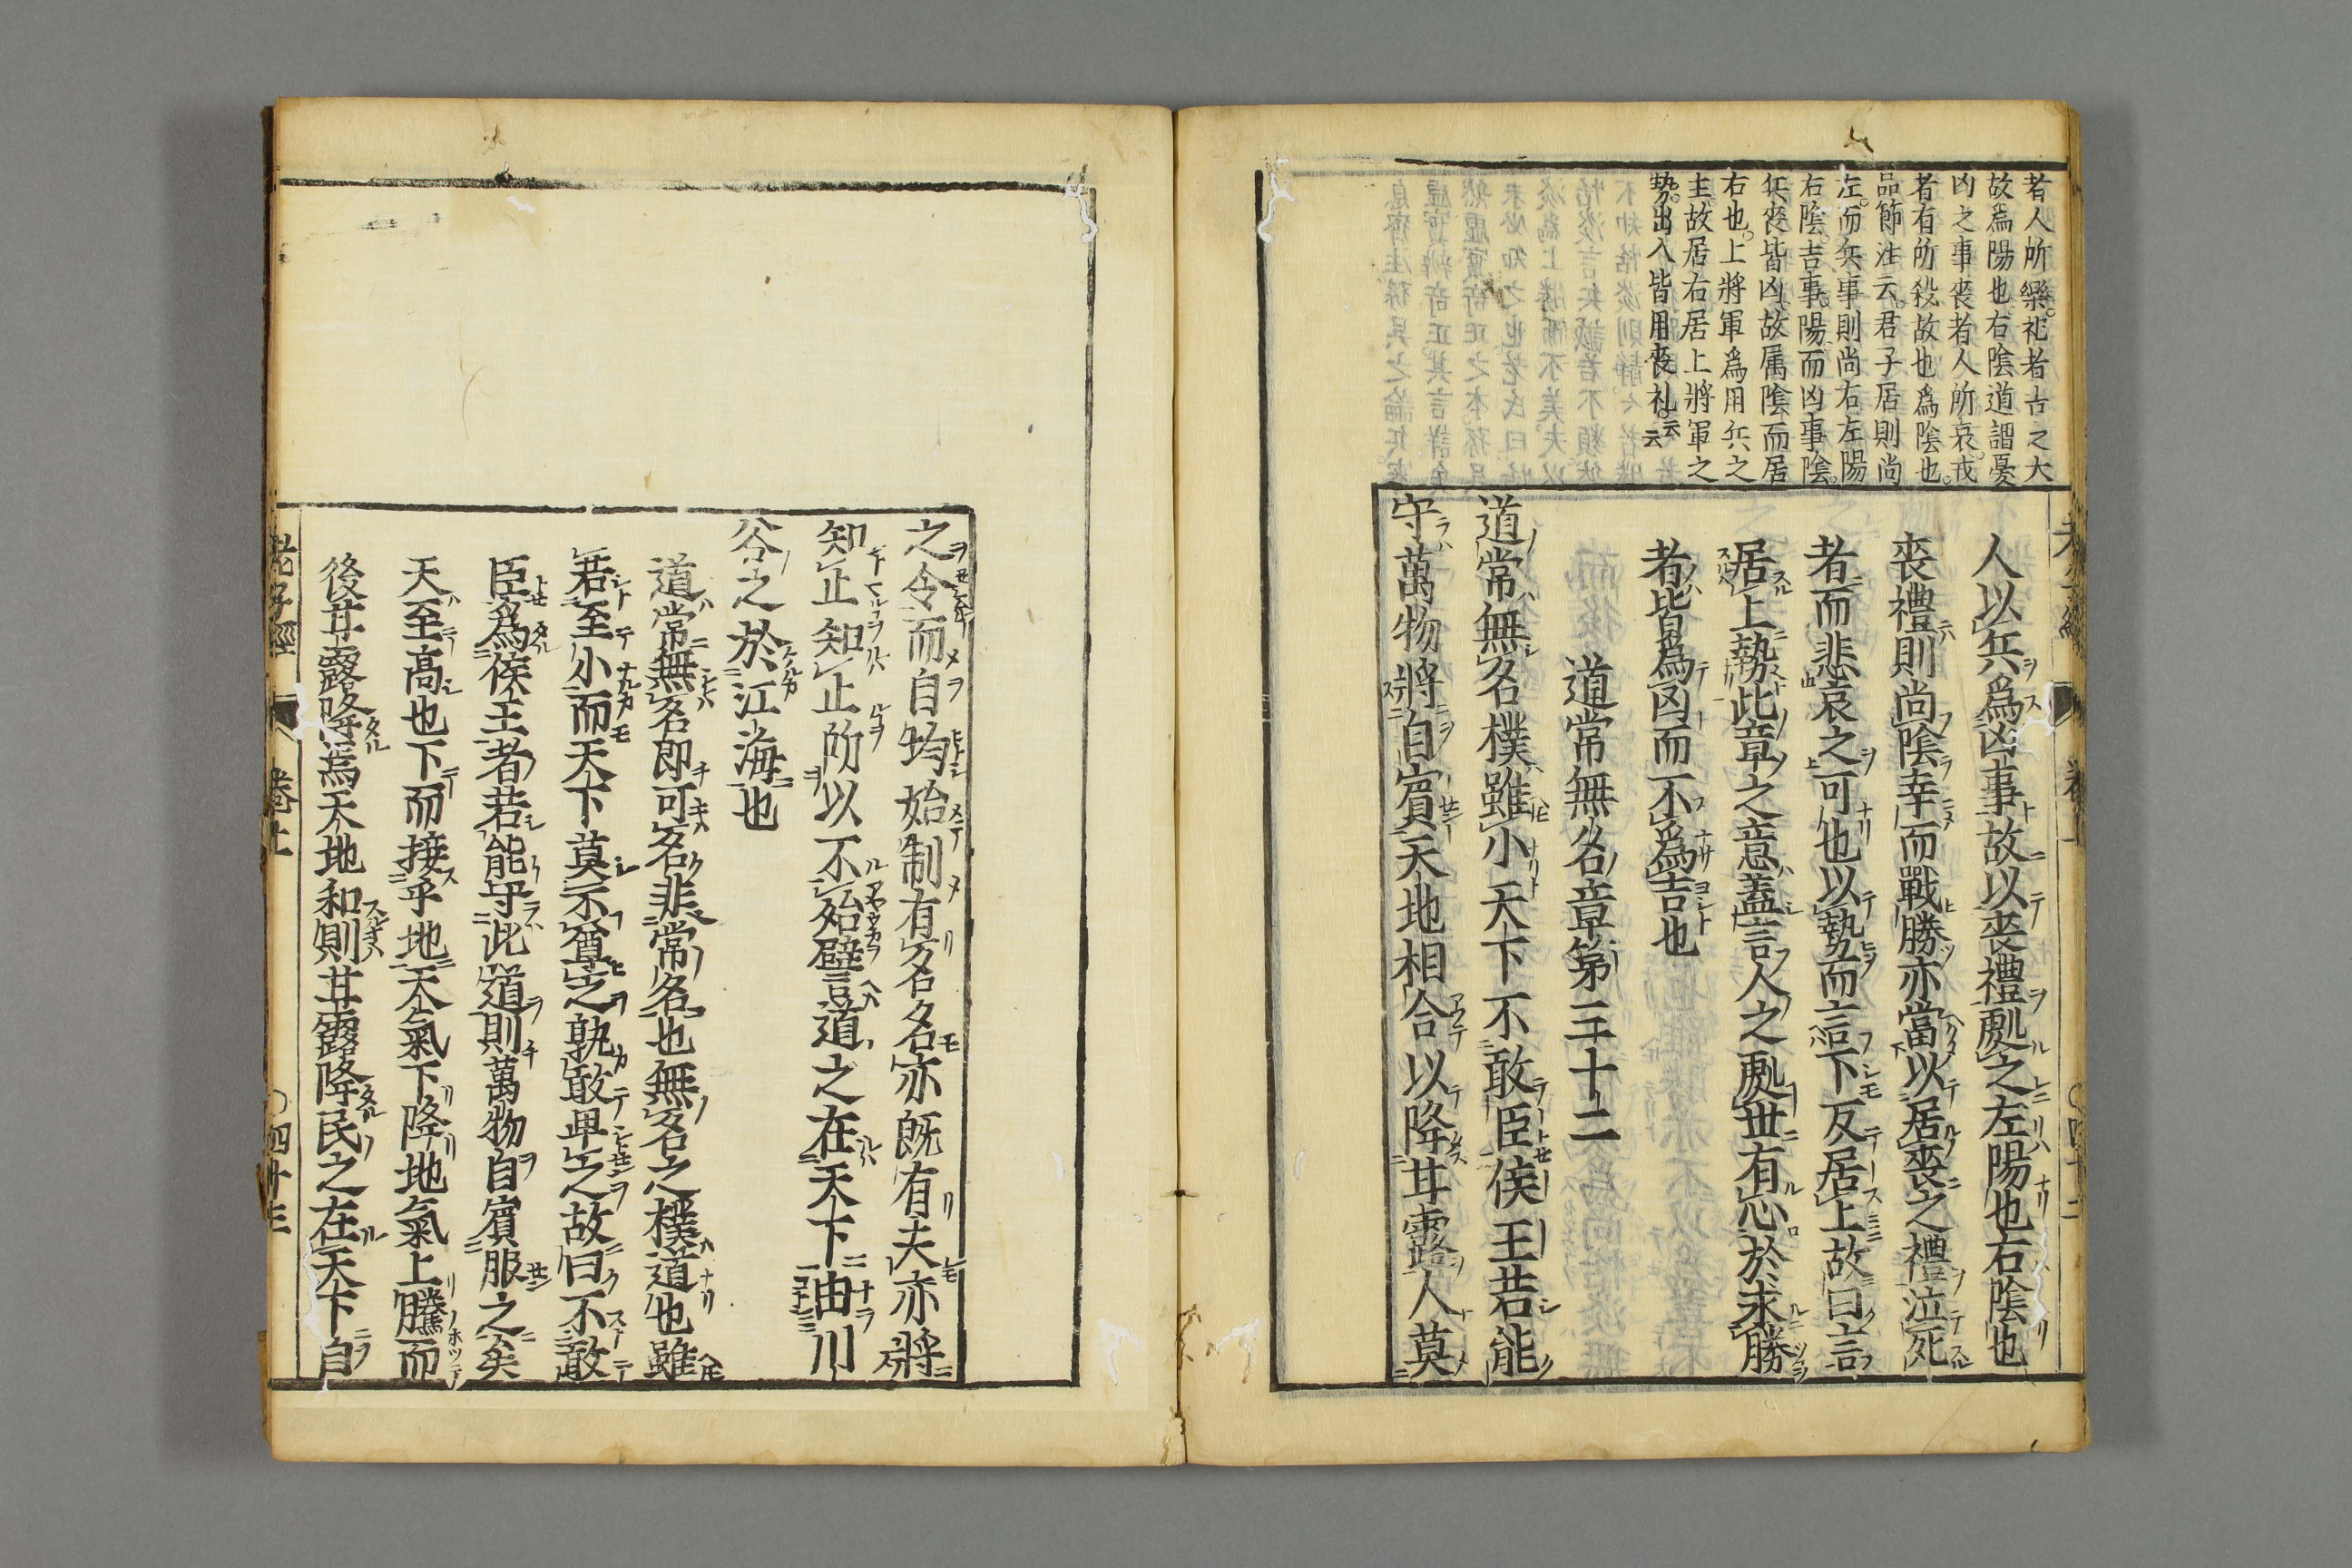 者人所樂祀者吉之大
故爲陽也右陰道謂憂
凶之事喪者人所哀戎
者有所殺故也爲陰也
品節注云君子居則尚
左而兵事則尚右左陽
右陰吉事陽而凶事陰
兵喪皆凶故属陰而居
右也上將軍爲用兵之
主故居右居上將軍之
勢出入皆用喪礼云云
人以兵爲凶事故以喪禮處之左陽也右陰也
喪禮則尚陰幸而戰勝亦當以居喪之禮泣死
者而悲哀之可也以勢而言下反居上故曰言
居上勢此章之意蓋言人之處世有心於求勝
者皆爲凶而不爲吉也
道常無名章第三十二
道常無名樸雖小天下不敢臣侯王若能
守萬物將自賓天地相合以降甘露人莫
之令而自均始制有名名亦既有夫亦將
知止知止所以不殆譬道之在天下由川
谷之於江海也
道常無名即可名非常名也無名之樸道也雖
若至小而天下莫不尊之孰敢卑之故曰不敢
臣爲侯王者若能守此道則萬物自賓服之矣
天至高也下而接乎地天氣下降地氣上騰而
後甘露降焉天地和則甘露降民之在天下自
老子經 卷上 四十三